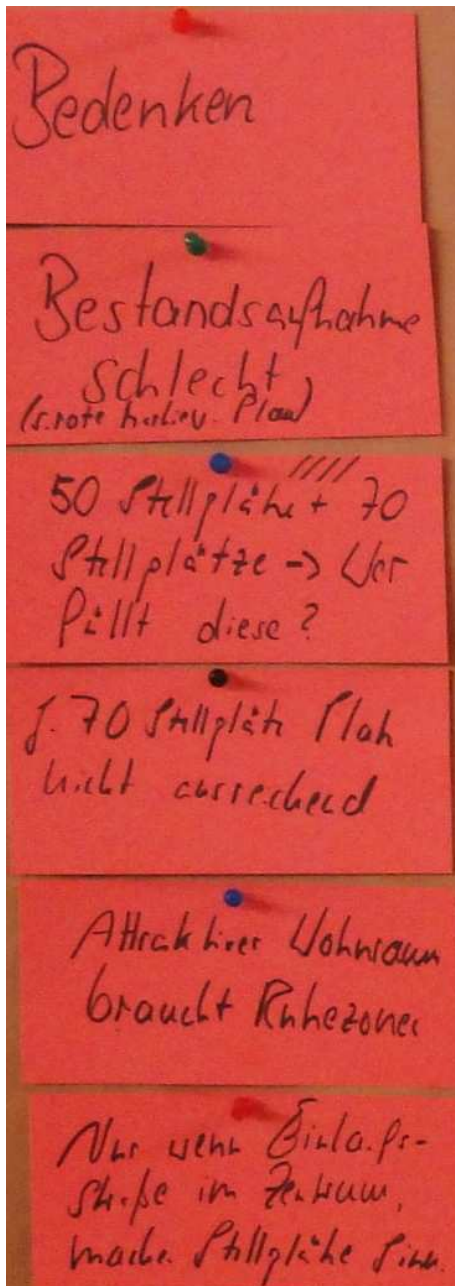 Bedenken
Bestandsaufnahme
schlecht
(s. rote Plan)
50 Stellplätze + 70
Stellplätze -> Wer
füllt diese?
f. 70 Stellplätze Platz
nicht ausreichend
Attraktiver Wohnraum
braucht Ruhezonen
Nur wenn Einkaufs-
straße im Zentrum,
machen Stellplätze Sinn.